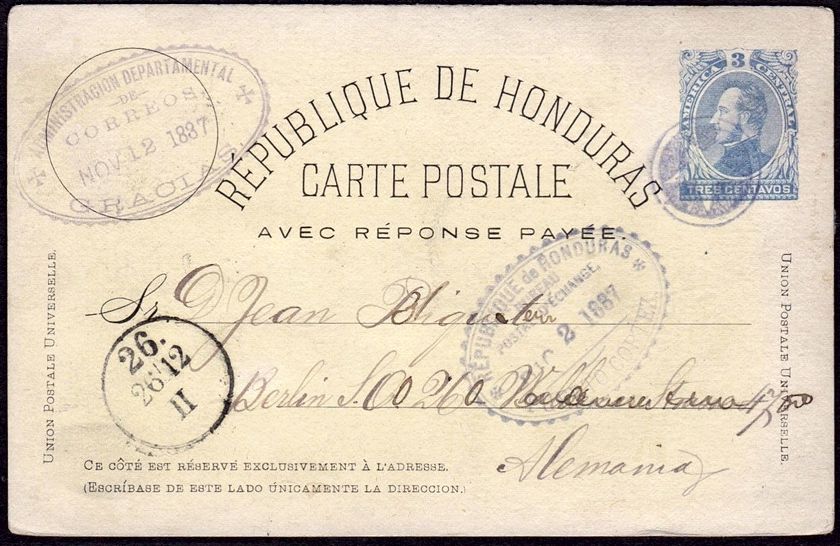 ADMINISTRACION DEPARTAMENTAL
DE
CORREOS
NOV 12 1887
GRACIAS
RÉPUBLIQUE DE HONDURAS
CARTE POSTALE
AVEC RÉPONSE PAYÉE.
3
AMERICA CENTRAL
TRES CENTAVOS
UNION POSTALE UNIVERSELLE.
UNION POSTALE UNIVERSELLE.
RÉPUBLIQUE de HONDURAS
BUREAU
POSTAL D'ÉCHANGE.
2 1887
CORTEZ
Sr. D. Jean
26.
26 12
II
Berlin S.O 26
Alemania
CE CÔTÉ EST RÉSERVÉ EXCLUSIVEMENT À L'ADRESSE.
(ESCRÍBASE DE ESTE LADO ÚNICAMENTE LA DIRECCION.)